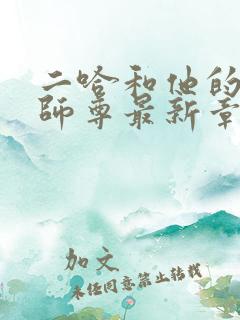 二哈和他的
師尊最新章
加文
未经同意禁止转载